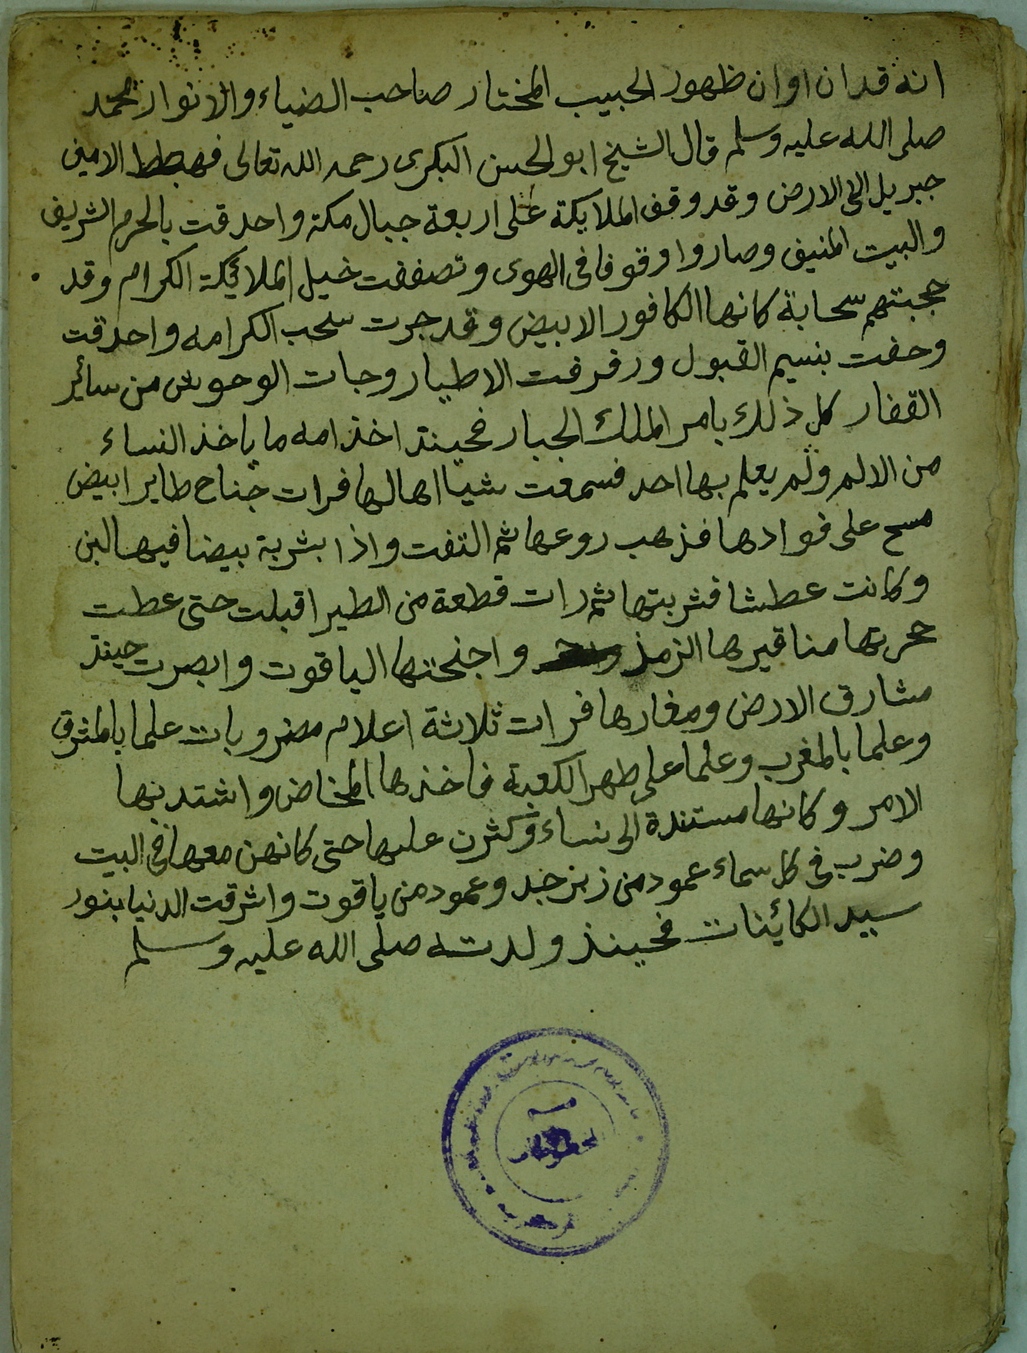 انه قد ان اوان ظهور الحبيب المختار صاحب الضياء والانوار محمد
صلى الله عليه وسلم قال الشيخ ابو الحسن البكرى رحمه الله تعالى فهبط الامين
جبريل الى الارض وقد وقف الملايكة على اربعة جبال مكة واحدقت بالحرم الشريف
والبيت المنيف وصاروا وقوفا فى الهوى وتصففت خيل الملايكة الكرام وقد
حجبتهم سحابة كانها الكافور الابيض وقد جرت سحب الكرامه واحدقت
وحفت بنسيم القبول ورفرفت الاطيار وجات الوحوش من سائر
القفار كل ذلك بامر الملك الجبار فحينئذ اخذ امه ما ياخذ النساء
من الالم ولم يعلم بها احد فسمعت شيا اهالها فرات جناح طاير ابيض
مسح على فوادها فذهب روعها ثم التفت واذا بشربة بيضا فيها لبن
وكانت عطشا فشربتها ثم رات قطعة من الطير اقبلت حتى عطت
حجرتها مناقيرها الزمذ واجنحتها الياقوت وابصرت حينئذ
مشارق الارض ومغاربها فرات ثلاثة اعلام مضروبات علما بالمشرق
وعلما بالمغرب وعلما على ظهر الكعبة فاخذها المخاض واشتد بها
الامر وكانها مستندة الى نساء وكثرن عليها حتى كانهن معها فى البيت
وضرب فى كل سماء عمود من زبرجد وعمود من ياقوت واشرقت الدنيا بنور
سيد الكائينات فحينئذ ولدته صلى الله عليه وسلم